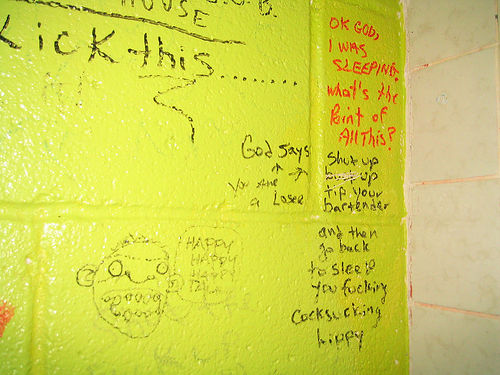 HOUSE
Lick this........
OK GOD,
I WAS
SLEEPING.
What's the
Point of
All This?
God says
You are
a Loser
Shut up
up
tip your
bartender
and then
go back
to sleep
you fucking
cocksucking
hippy
HAPPY
HAPPY
HAPPY